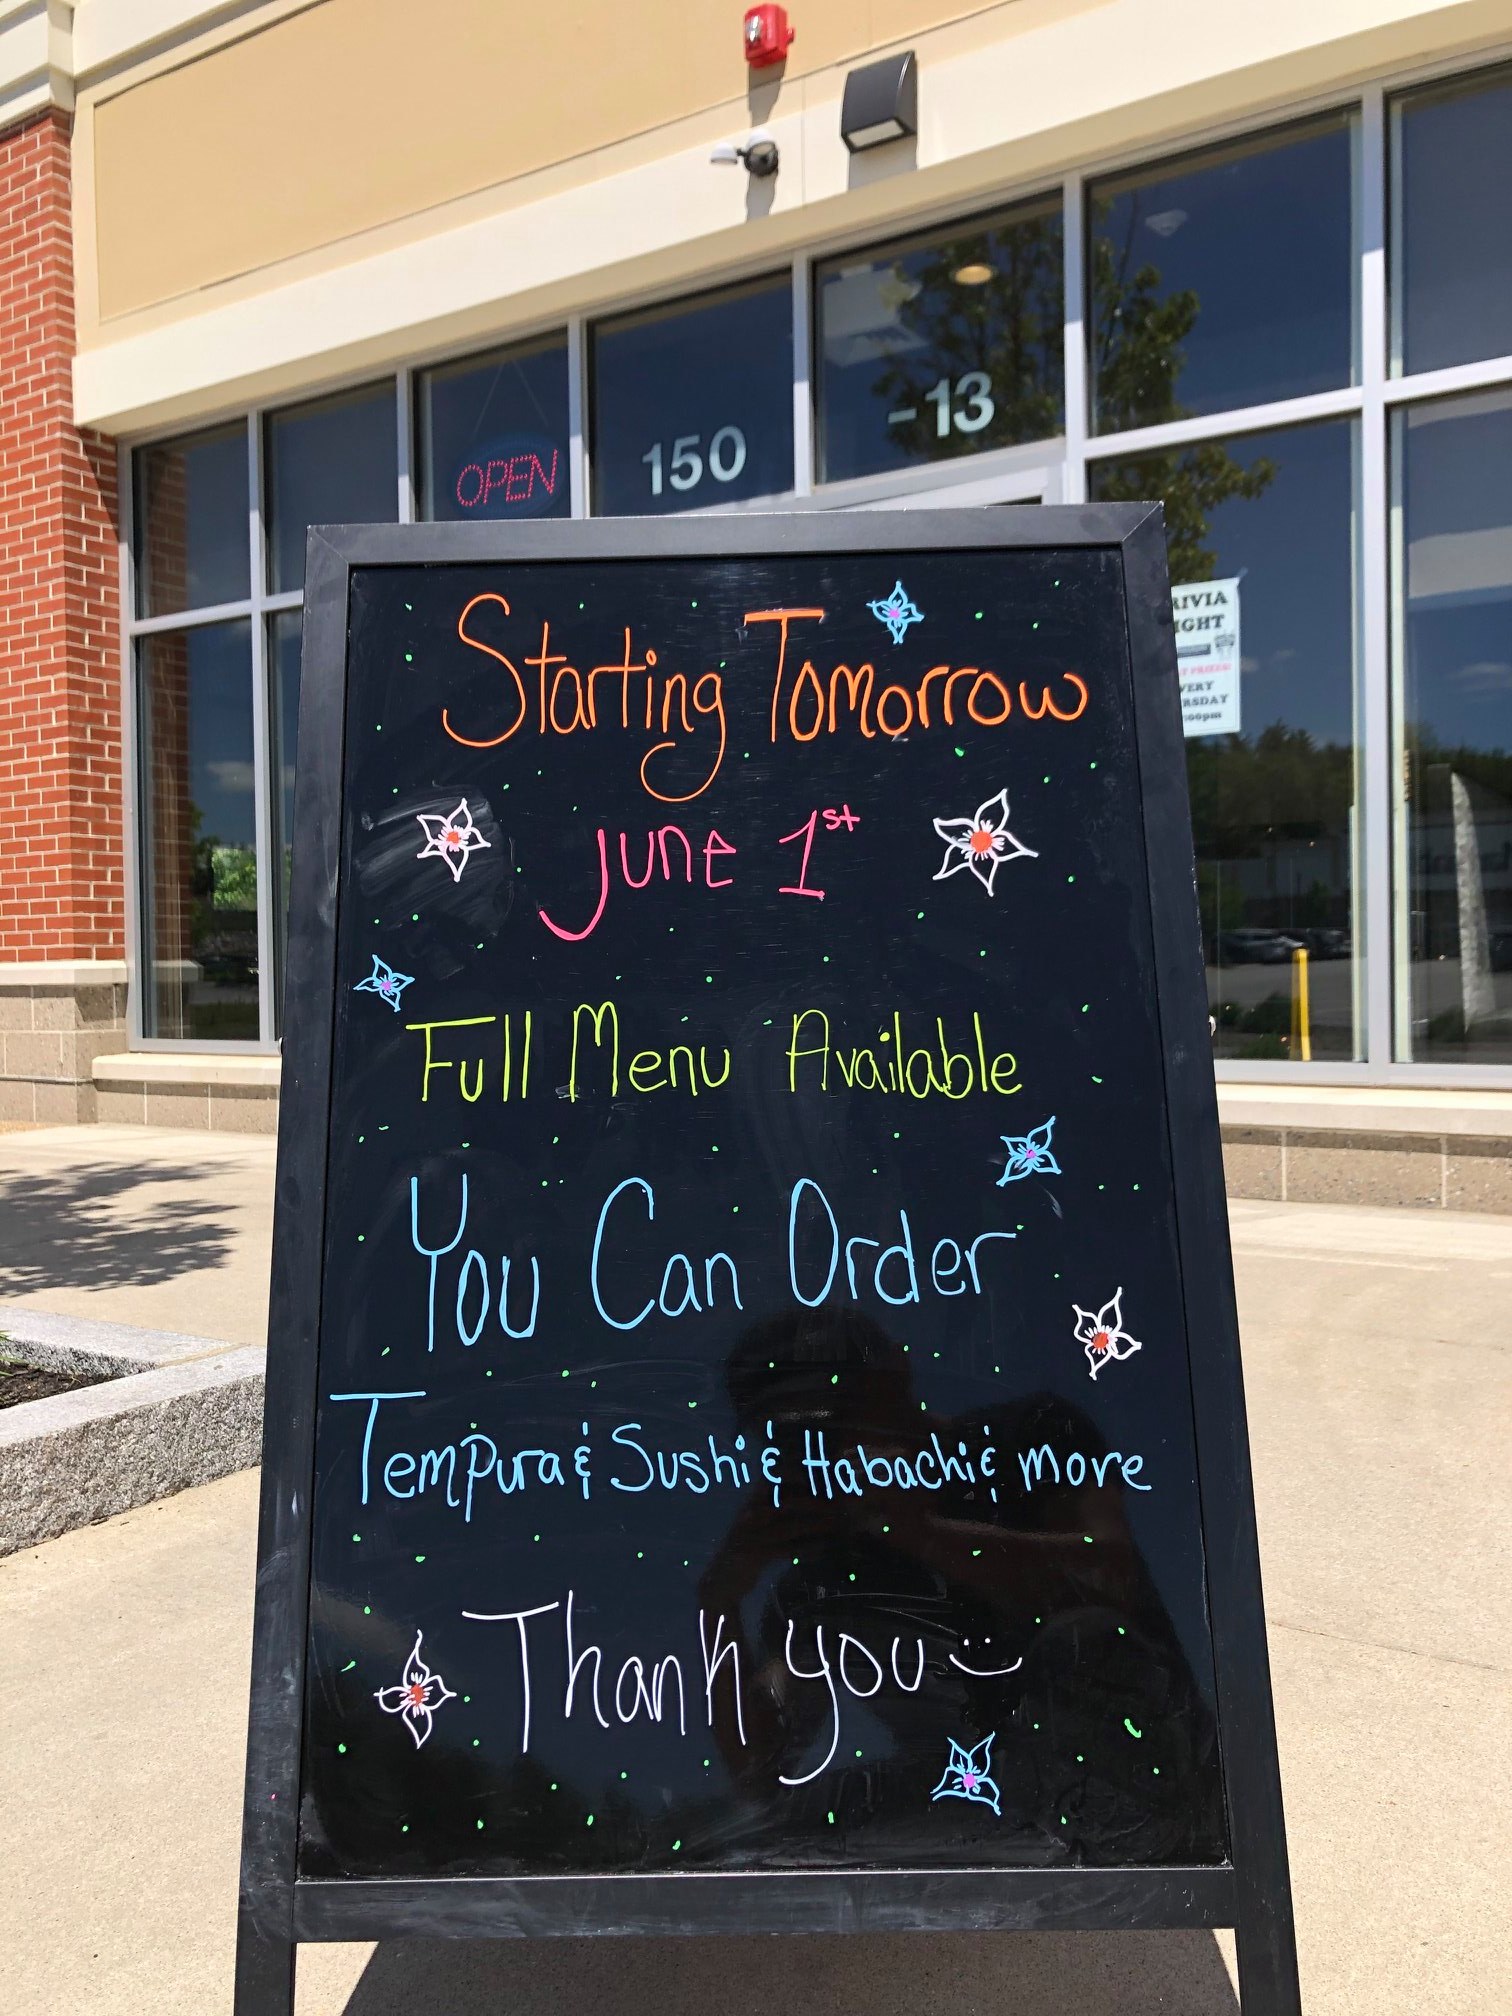 OPEN
150
-13
Starting Tomorrow
June 1st
Full Menu Available
You Can Order
Tempura & Sushi & Habachi & more
Thank you :)
RIVIA
IGHT
PRIZES!
VERY
RSDAY
:00pm